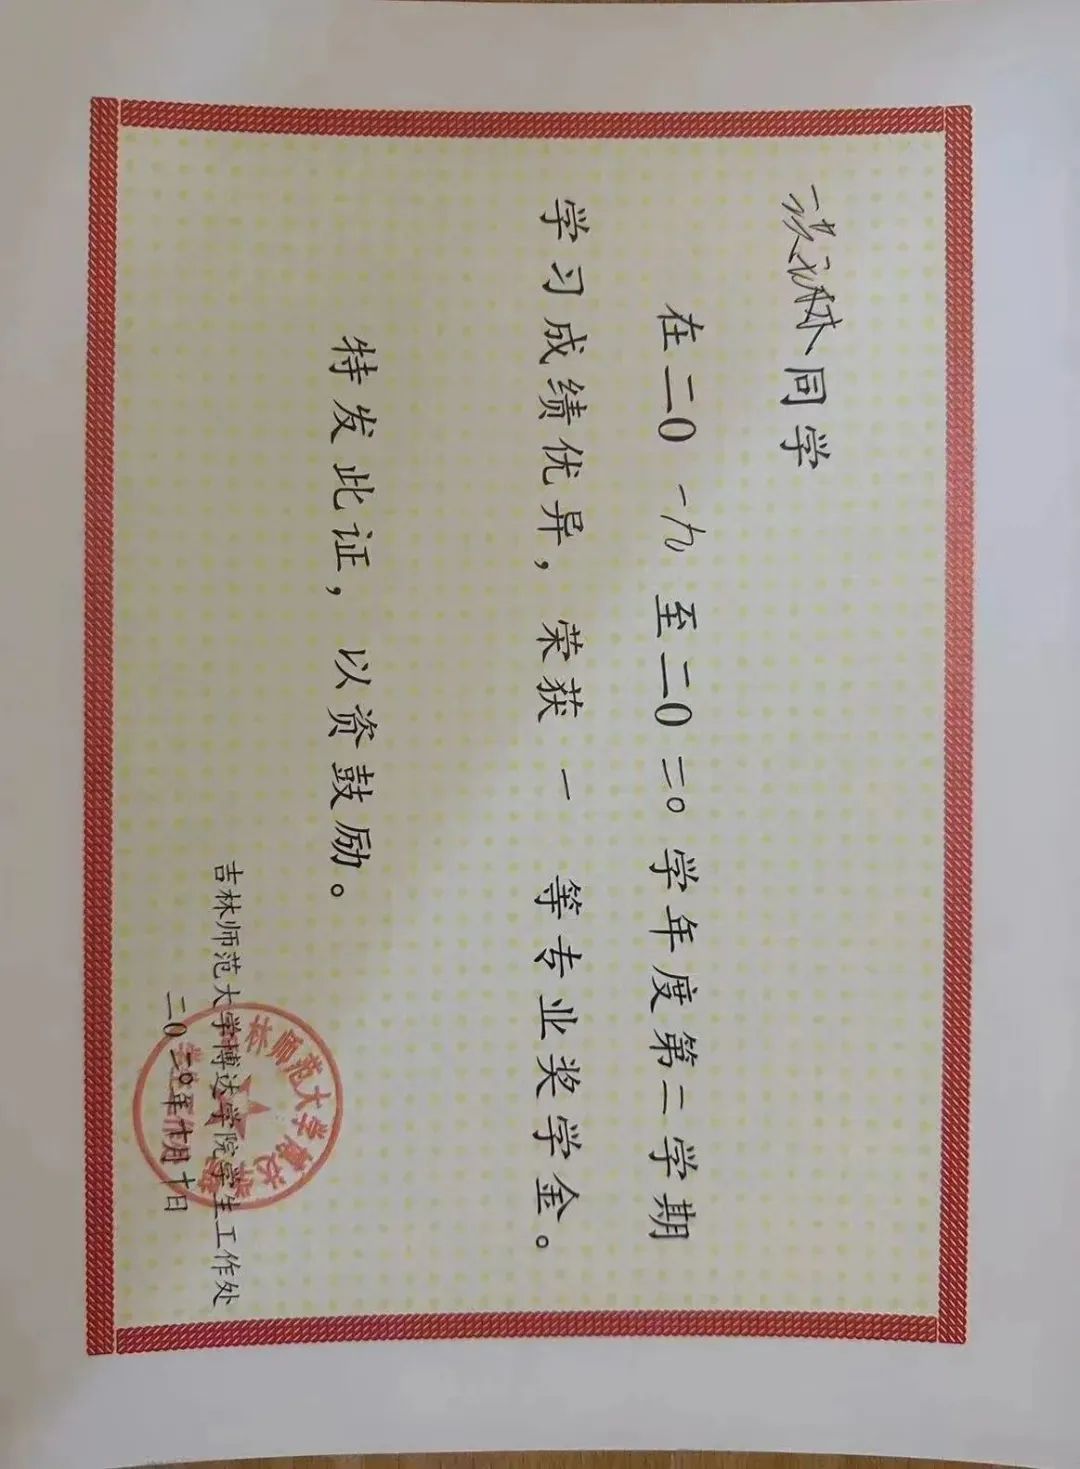 同学
在二〇一九至二〇二〇学年度第二学期
学习成绩优异，荣获一等专业奖学金。
特发此证，以资鼓励。
吉林师范大学博达学院学生工作处
二〇二〇年十月十日
林师范大学博达学院